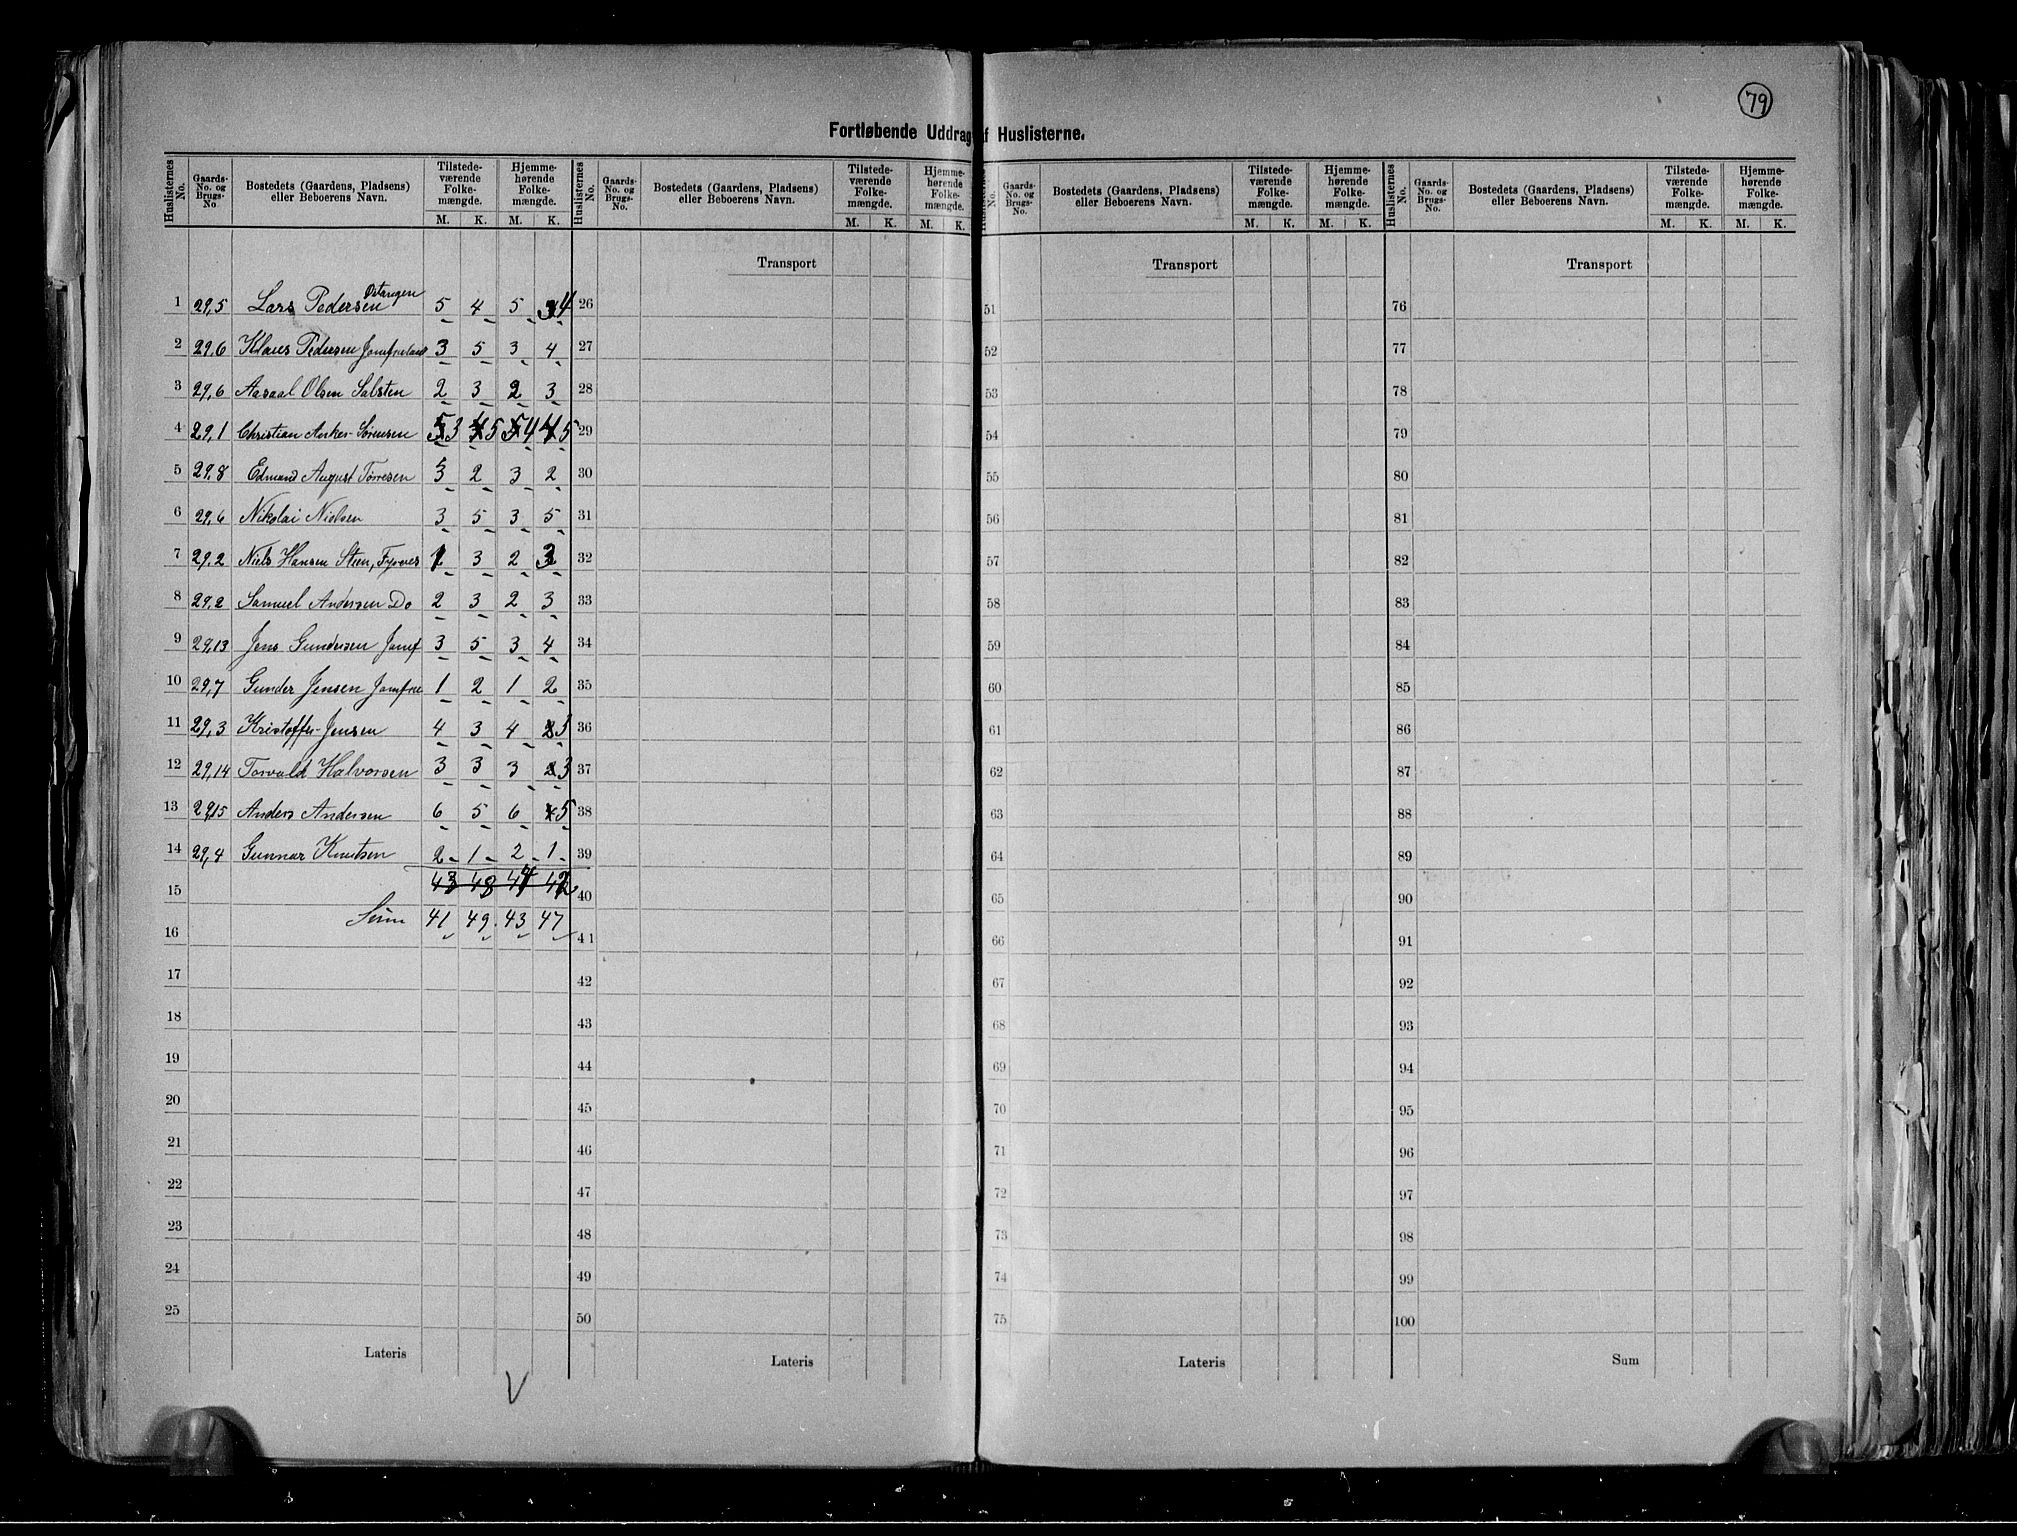 79
Fortløbende Uddrag af Huslisterne.
Huslisternes No. Gaards-No. og Brugs-No. Bostedets (Gaardens, Pladsens) eller Beboerens Navn. Tilstedeværende Folkemængde. M. K. Hjemmehørende Folkemængde. M. K.
Huslisternes No. Gaards-No. og Brugs-No. Bostedets (Gaardens, Pladsens) eller Beboerens Navn. Tilstedeværende Folkemængde. M. K. Hjemmehørende Folkemængde. M. K.
Huslisternes No. Gaards-No. og Brugs-No. Bostedets (Gaardens, Pladsens) eller Beboerens Navn. Tilstedeværende Folkemængde. M. K. Hjemmehørende Folkemængde. M. K.
Huslisternes No. Gaards-No. og Brugs-No. Bostedets (Gaardens, Pladsens) eller Beboerens Navn. Tilstedeværende Folkemængde. M. K. Hjemmehørende Folkemængde. M. K.
Transport Transport Transport
1 29,5 Lars Pedersen 5 4 5 4 26 51 76
2 29,6 Klaus Pedersen Jomfruland 3 5 3 4 27 52 77
3 29,6 Aasaal Olsen Salsten 2 3 2 3 28 53 78
4 29,1 Christian Anker Sørensen 3 5 4 5 29 54 79
5 29,8 Edmund August Tørresen 3 2 3 2 30 55 80
6 29,6 Nikolai Nielsen 3 5 3 5 31 56 81
7 29,2 Niels Hansen Steen, Fyrvæs 1 3 2 3 32 57 82
8 29,2 Samuel Andersen Do 2 3 2 3 33 58 83
9 29,13 Jens Gundersen Jomf 3 5 3 4 34 59 84
10 29,7 Gunder Jensen Jomfru 1 2 1 2 35 60 85
11 29,3 Kristoffer Jensen 4 3 4 3 36 61 86
12 29,14 Torvald Halvorsen 3 3 3 3 37 62 87
13 29,15 Anders Andersen 6 5 6 5 38 63 88
14 29,4 Gunnar Knutsen 2 1 2 1 39 64 89
15 43 48 44 42 40 65 90
Sum 41 49 43 47
16 41 66 91
17 42 67 92
18 43 68 93
19 44 69 94
20 45 70 95
21 46 71 96
22 47 72 97
23 48 73 98
24 49 74 99
25 50 75 100
Lateris Lateris Lateris Sum